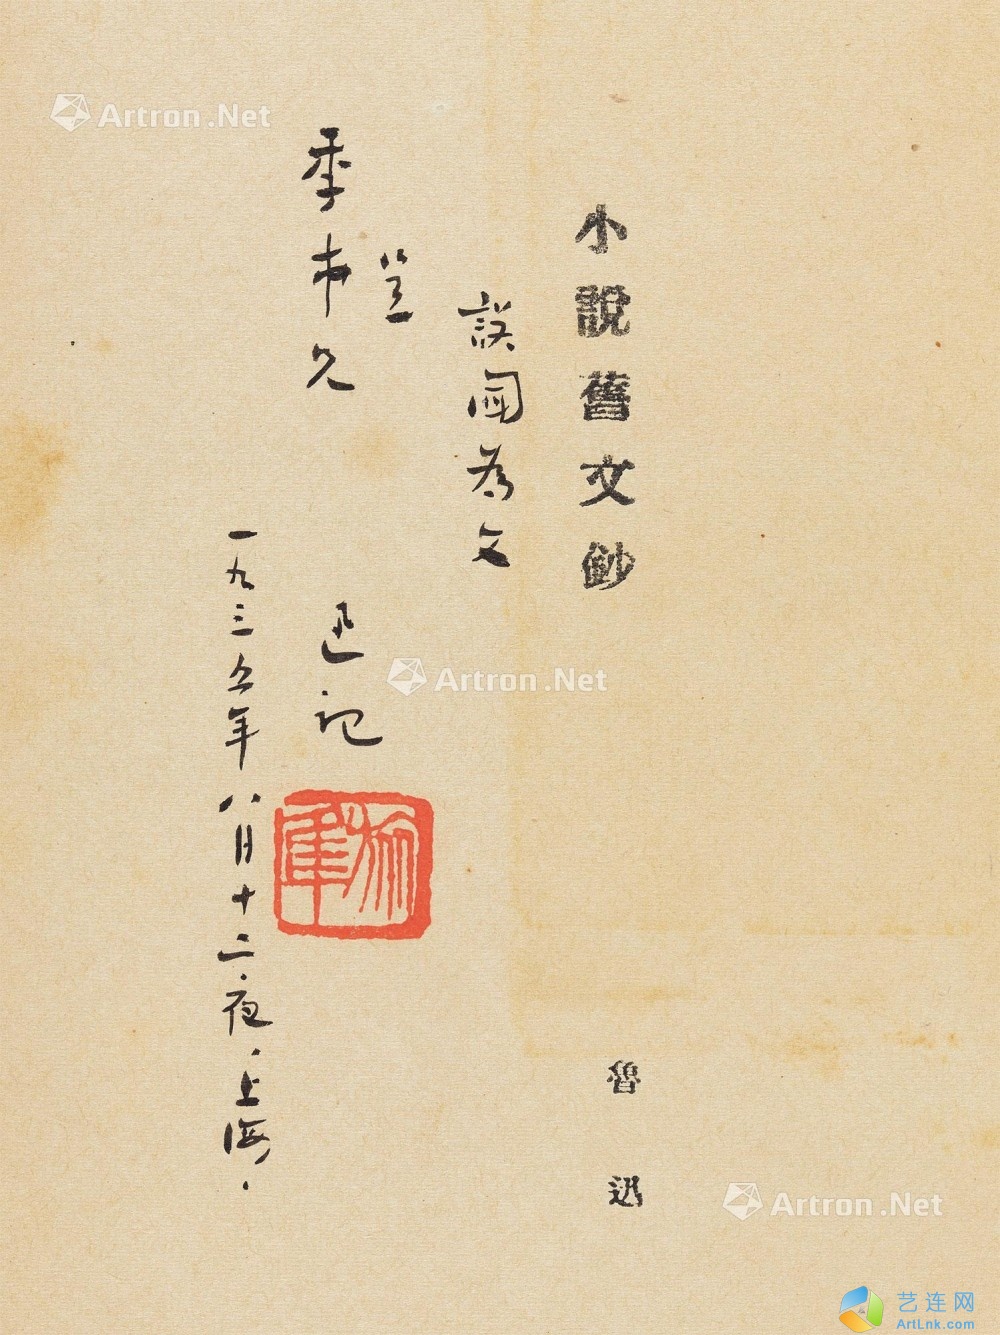 小說舊文鈔
魯迅
為文
季市兄
迅记
一九三五年八月十二夜.上海.
旅隼
Artron.Net
Artron.Net
Artron.Net
艺连网
ArtLnk.com